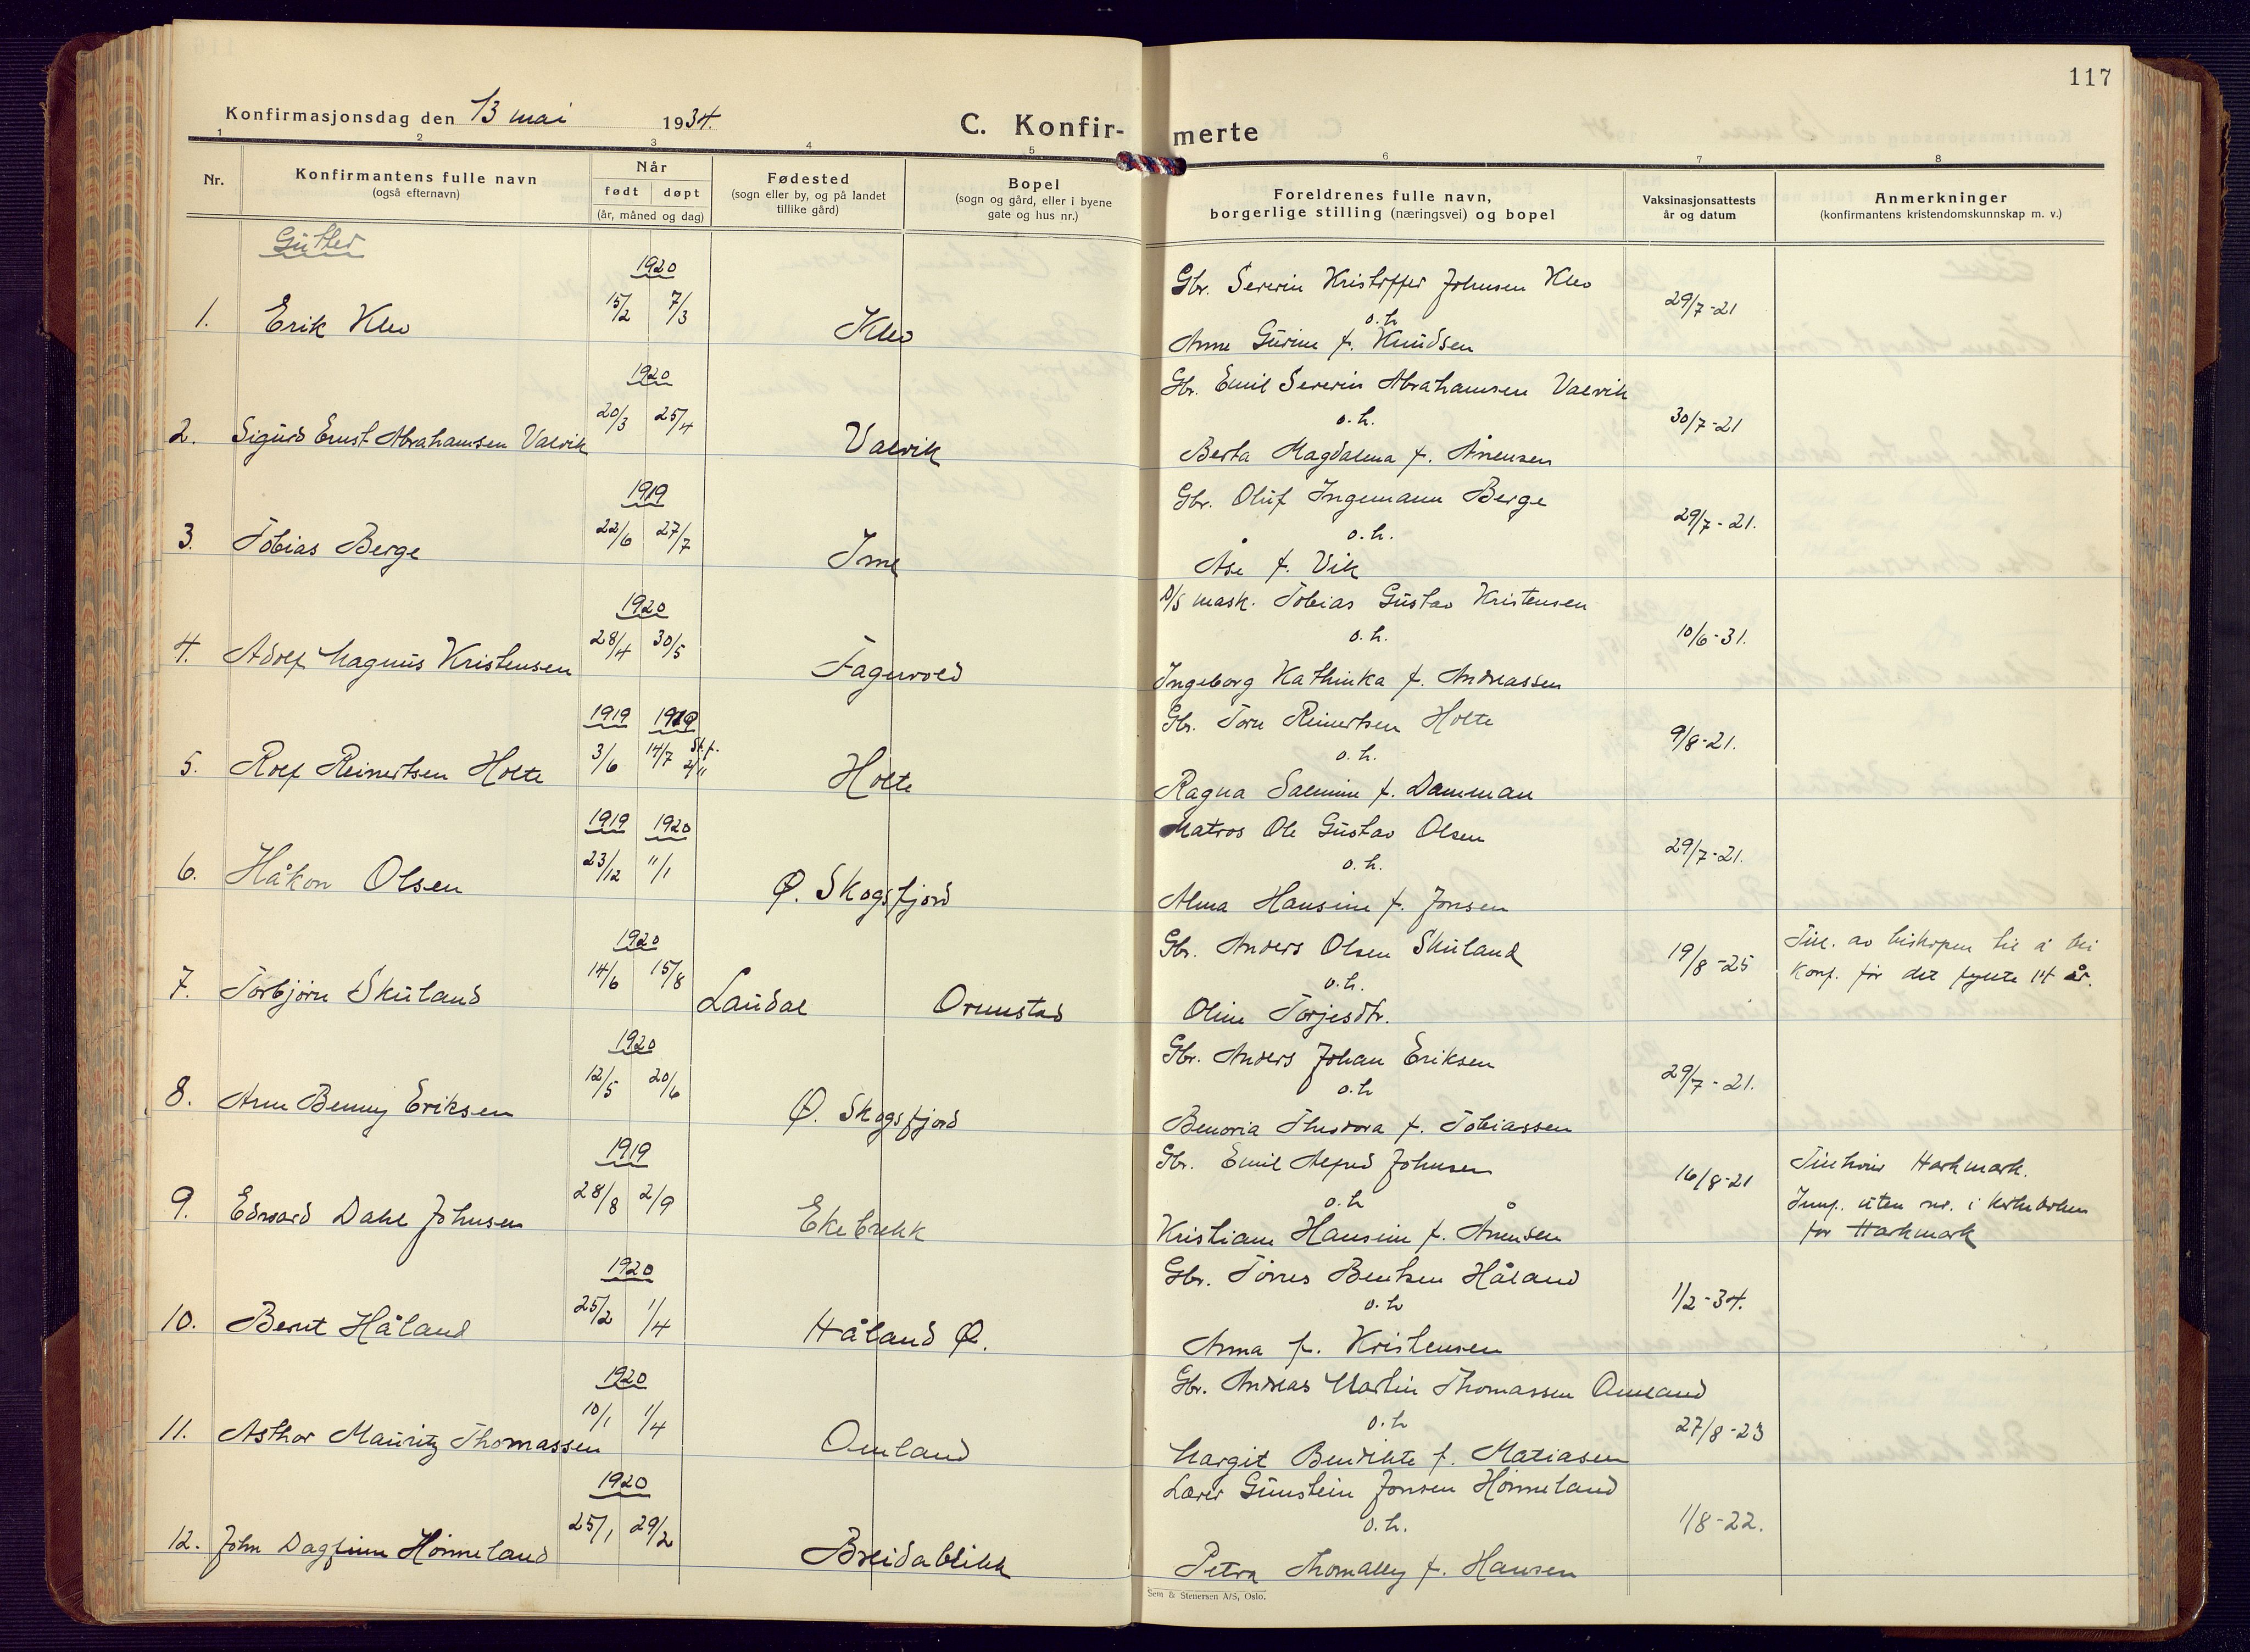 117
Konfirmasjonsdag den 13 mai 1934.
C. Konfir-merte
1 2 3 4 5 6 7 8
Nr.
Konfirmantens fulle navn
(også efternavn)
Når
født døpt
(år, måned og dag)
Fødested
(sogn eller by, og på landet
tillike gård)
Bopel
(sogn og gård, eller i byene
gate og hus nr.)
Foreldrenes fulle navn,
borgerlige stilling (næringsvei) og bopel
Vaksinasjonsattests
år og datum
Anmerkninger
(konfirmantens kristendomskunnskap m. v.)
Gutter
1920
Gbr. Severin Kristoffer Johnsen Klev
1. Erik Klev 15/2 7/3 Klev o.h 29/7-21
Anne Gurine f. Knudsen
1920
Gbr. Emil Severin Abrahamsen Valvik
2. Sigurd Ernst Abrahamsen Valvik 20/3 25/4 Valvik o.h. 30/7-21
Berta Magdalena f. Ånensen
1919
Gbr. Oluf Ingemann Berge
3. Tobias Berge 22/6 27/7 Ime o.h. 29/7-21.
Åse f. Vik
1920
D/S mask. Tobias Gustav Kristensen
4. Adolf Magnus Kristensen 28/4 30/5 Fagervold o.h. 10/6-31.
Ingeborg Kathinka f. Andreassen
1919 1919
Gbr. Tore Reinertsen Holte
5. Rolf Reinertsen Holte 3/6 14/7 St.f. 2/11 Holte o.h. 9/8-21.
Ragna Salmine f. Damman
1919 1920
Matros Ole Gustav Olsen
6. Håkon Olsen 23/12 11/1 Ø. Skogsfjord o.h. 29/7-21.
Alma Hansine f. Jonsen
1920
Gbr. Anders Olsen Skuland
7. Torbjørn Skuland 14/6 15/8 Laudal Ormstad o.h. 19/8-25
Till. av biskopen til å bli
konf. før det fylte 14 år.
Oline Torjesdtr.
1920
Gbr. Anders Johan Eriksen
8. Arne Benny Eriksen 12/5 20/6 Ø. Skogsfjord o.h 29/7-21.
Benoria Theodora f. Tobiassen
1919
Gbr. Emil Alfred Johnsen
9. Edvard Dahl Johnsen 28/8 2/9 Ekebrekk o.h 16/8-21
Tilhører Harkmark.
Innf. uten nr. i kirkeboken
for Harkmark
Kristiane Hansine f. Ånensen
1920
Gbr. Tørres Bentsen Håland
10. Bernt Håland 25/2 1/4 Håland Ø. o.h 1/2-34.
Anna f. Kristensen
1920
Gbr. Andreas Martin Thomassen Omland
11. Asthor Mauritz Thomassen 10/1 1/4 Omland o.h 27/8-23
Margit Bendikte f. Matiasen
1920
Lærer Gunstein Jonsen Hønneland
12. John Dagfinn Hønneland 25/1 29/2 Breidablikk o.h. 1/8-22.
Petra Thomally f. Hansen
Sem & Stenersen A/S, Oslo.